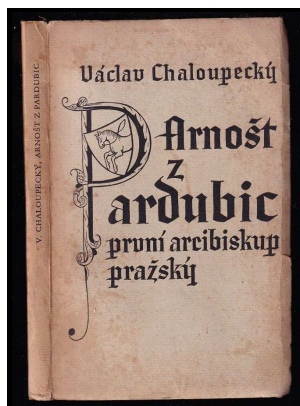 V. CHALOUPECKÝ, ARNOŠT Z PARDUBIC
Václav Chaloupecký
Arnošt
z
Pardubic
první arcibiskup
pražský